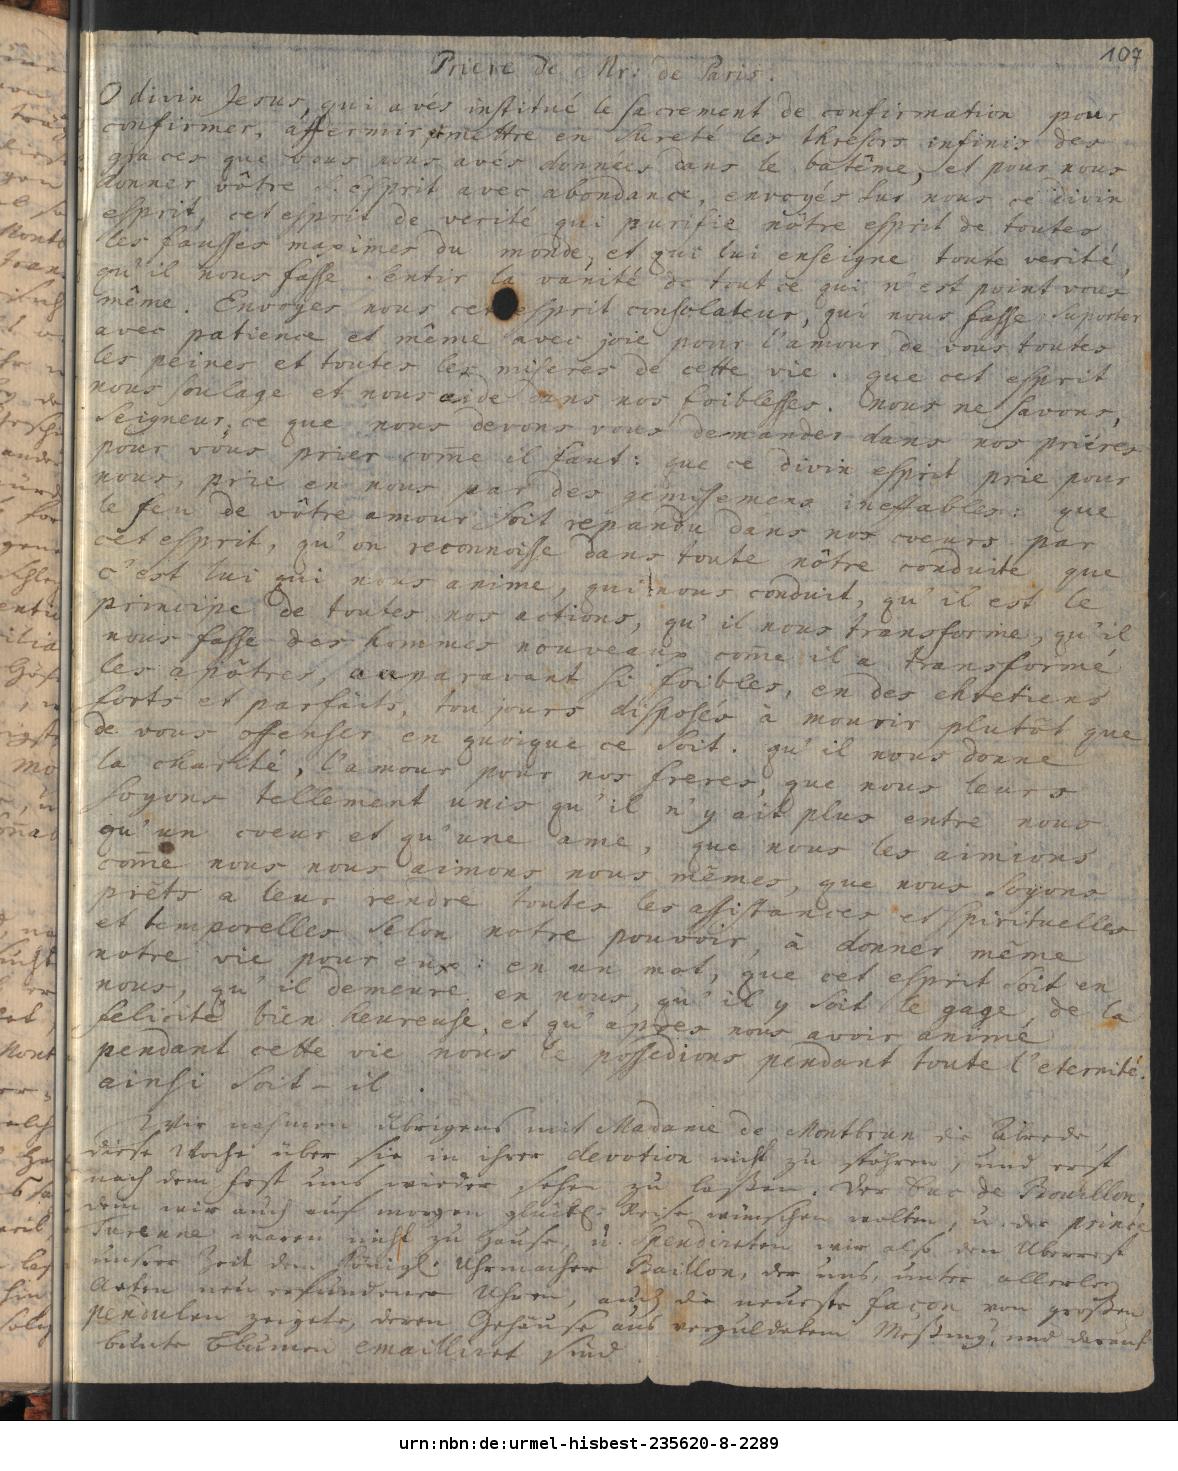 107
Priere de Mr: de Paris.
O divin Jesus, qui avés institué le sacrement de confirmation pour
confirmer, affermir, mettre en sureté les thresors infinis des
graces que vous nous avés données dans le batême, et pour nous
donner vôtre S. esprit avec abondance, envoyés sur nous ce divin
esprit, cet esprit de verité qui purifie nôtre esprit de toutes
les fausses maximes du monde, et qui lui enseigne toute verité,
qu'il nous fasse sentir la vanité de tout ce qui n'est point vous
même. Envoyés nous cet esprit consolateur, qui nous fasse suporter
avec patience et même avec joie pour l'amour de vous toutes
les peines et toutes les miseres de cette vie. que cet esprit
nous soulage et nous aide dans nos foiblesses. nous ne savons,
Seigneur, ce que nous devons vous demander dans nos priéres
pour vous prier com̄e il faut: que ce divin esprit prie pour
nous, prie en nous par des gemissemens ineffables: que
le feu de vôtre amour soit repandu dans nos coeurs par
cet esprit, qu'on reconnoisse dans toute nôtre conduite que
c'est lui qui nous anime, qui nous conduit, qu'il est le
principe de toutes nos actions, qu'il nous transforme, qu'il
nous fasse des hommes nouveaux com̄e il a transformé
les apôtres, auparavant si foibles, en des chretiens
forts et parfaits, toujours disposés à mourir plutôt que
de vous offenser en quoique ce soit. qu'il nous donne
la charité, l'amour pour nos freres, que nous leurs
soyons tellement unis qu'il n'y ait plus entre nous
qu'un coeur et qu'une ame, que nous les aimions
com̄e nous nous aimons nous mêmes, que nous soyons
prêts a leur rendre toutes les assistances et spirituelles
et temporelles selon notre pouvoir, à donner même
notre vie pour eux: en un mot, que cet esprit soit en
nous, qu'il demeure en nous, qu'il y soit le gage de la
felicité bien heureuse, et qu'apres nous avoir animé
pendant cette vie nous le possedions pendant toute l'eternité.
ainsi soit-il.
Wir nahmen übrigens mit Madame de Montbrun die Abrede,
diese Woche über sie in ihrer devotion nicht zu stöhren, und erst
nach dem Fest uns wieder sehen zu laßen. Der Duc de Bouillon,
dem wir auch auf morgen glückl: Reise wünschen wolten, u. der prince
Turenne waren nicht zu Hause, u. spendireten wir also den Uberrest
unsrer Zeit dem Königl: Uhrmacher Baillon, der uns, unter allerley
Arten neu erfundener Uhren, auch die neueste façon von großen
pendulen zeigete, deren Gehäuse aus verguldetem Meßing, und darauf
bunte Blumen emailliret sind.
urn:nbn:de:urmel-hisbest-235620-8-2289